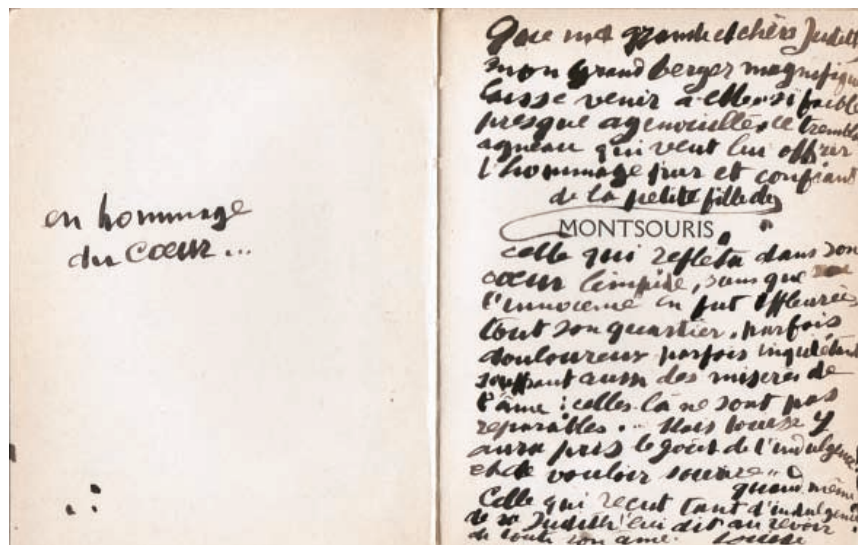 en hommage
du cœur...
Que ma grande et chère Judith
mon grand berger magnifique
laisse venir à elle, si faible
presque agenouillée, ce trembl
agneau qui veut lui offrir
l'hommage pur et confiant
de la petite fille de
MONTSOURIS
celle qui refléta dans son
cœur limpide, sans que
l'innocence en fut effleurée
tout son quartier, parfois
douloureux parfois inquiétant
souffrant aussi des misères de
l'âme : celles-là ne sont pas
réparables... Mais Louise y
aura pris le goût de l'indulgence
et de vouloir sourire..
quand même
Celle qui reçut tant d'indulgence
de sa Judith lui dit au revoir
de toute son âme. Louise